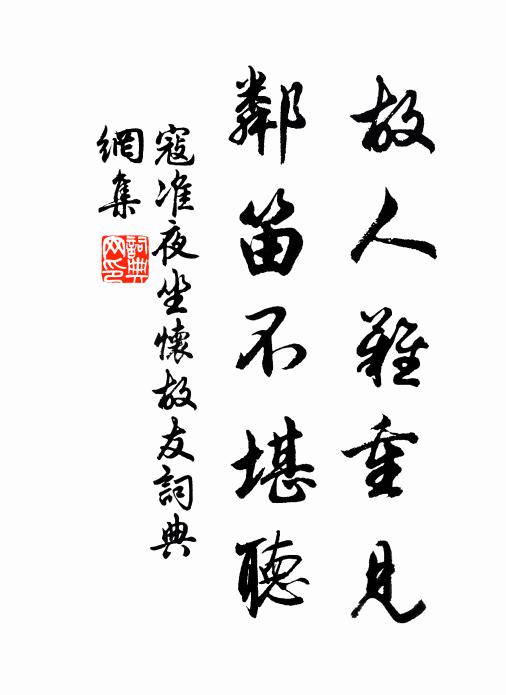 故人難重見
鄰笛不堪聽
寇准夜坐懷故友詞典
網集
詞典
网印